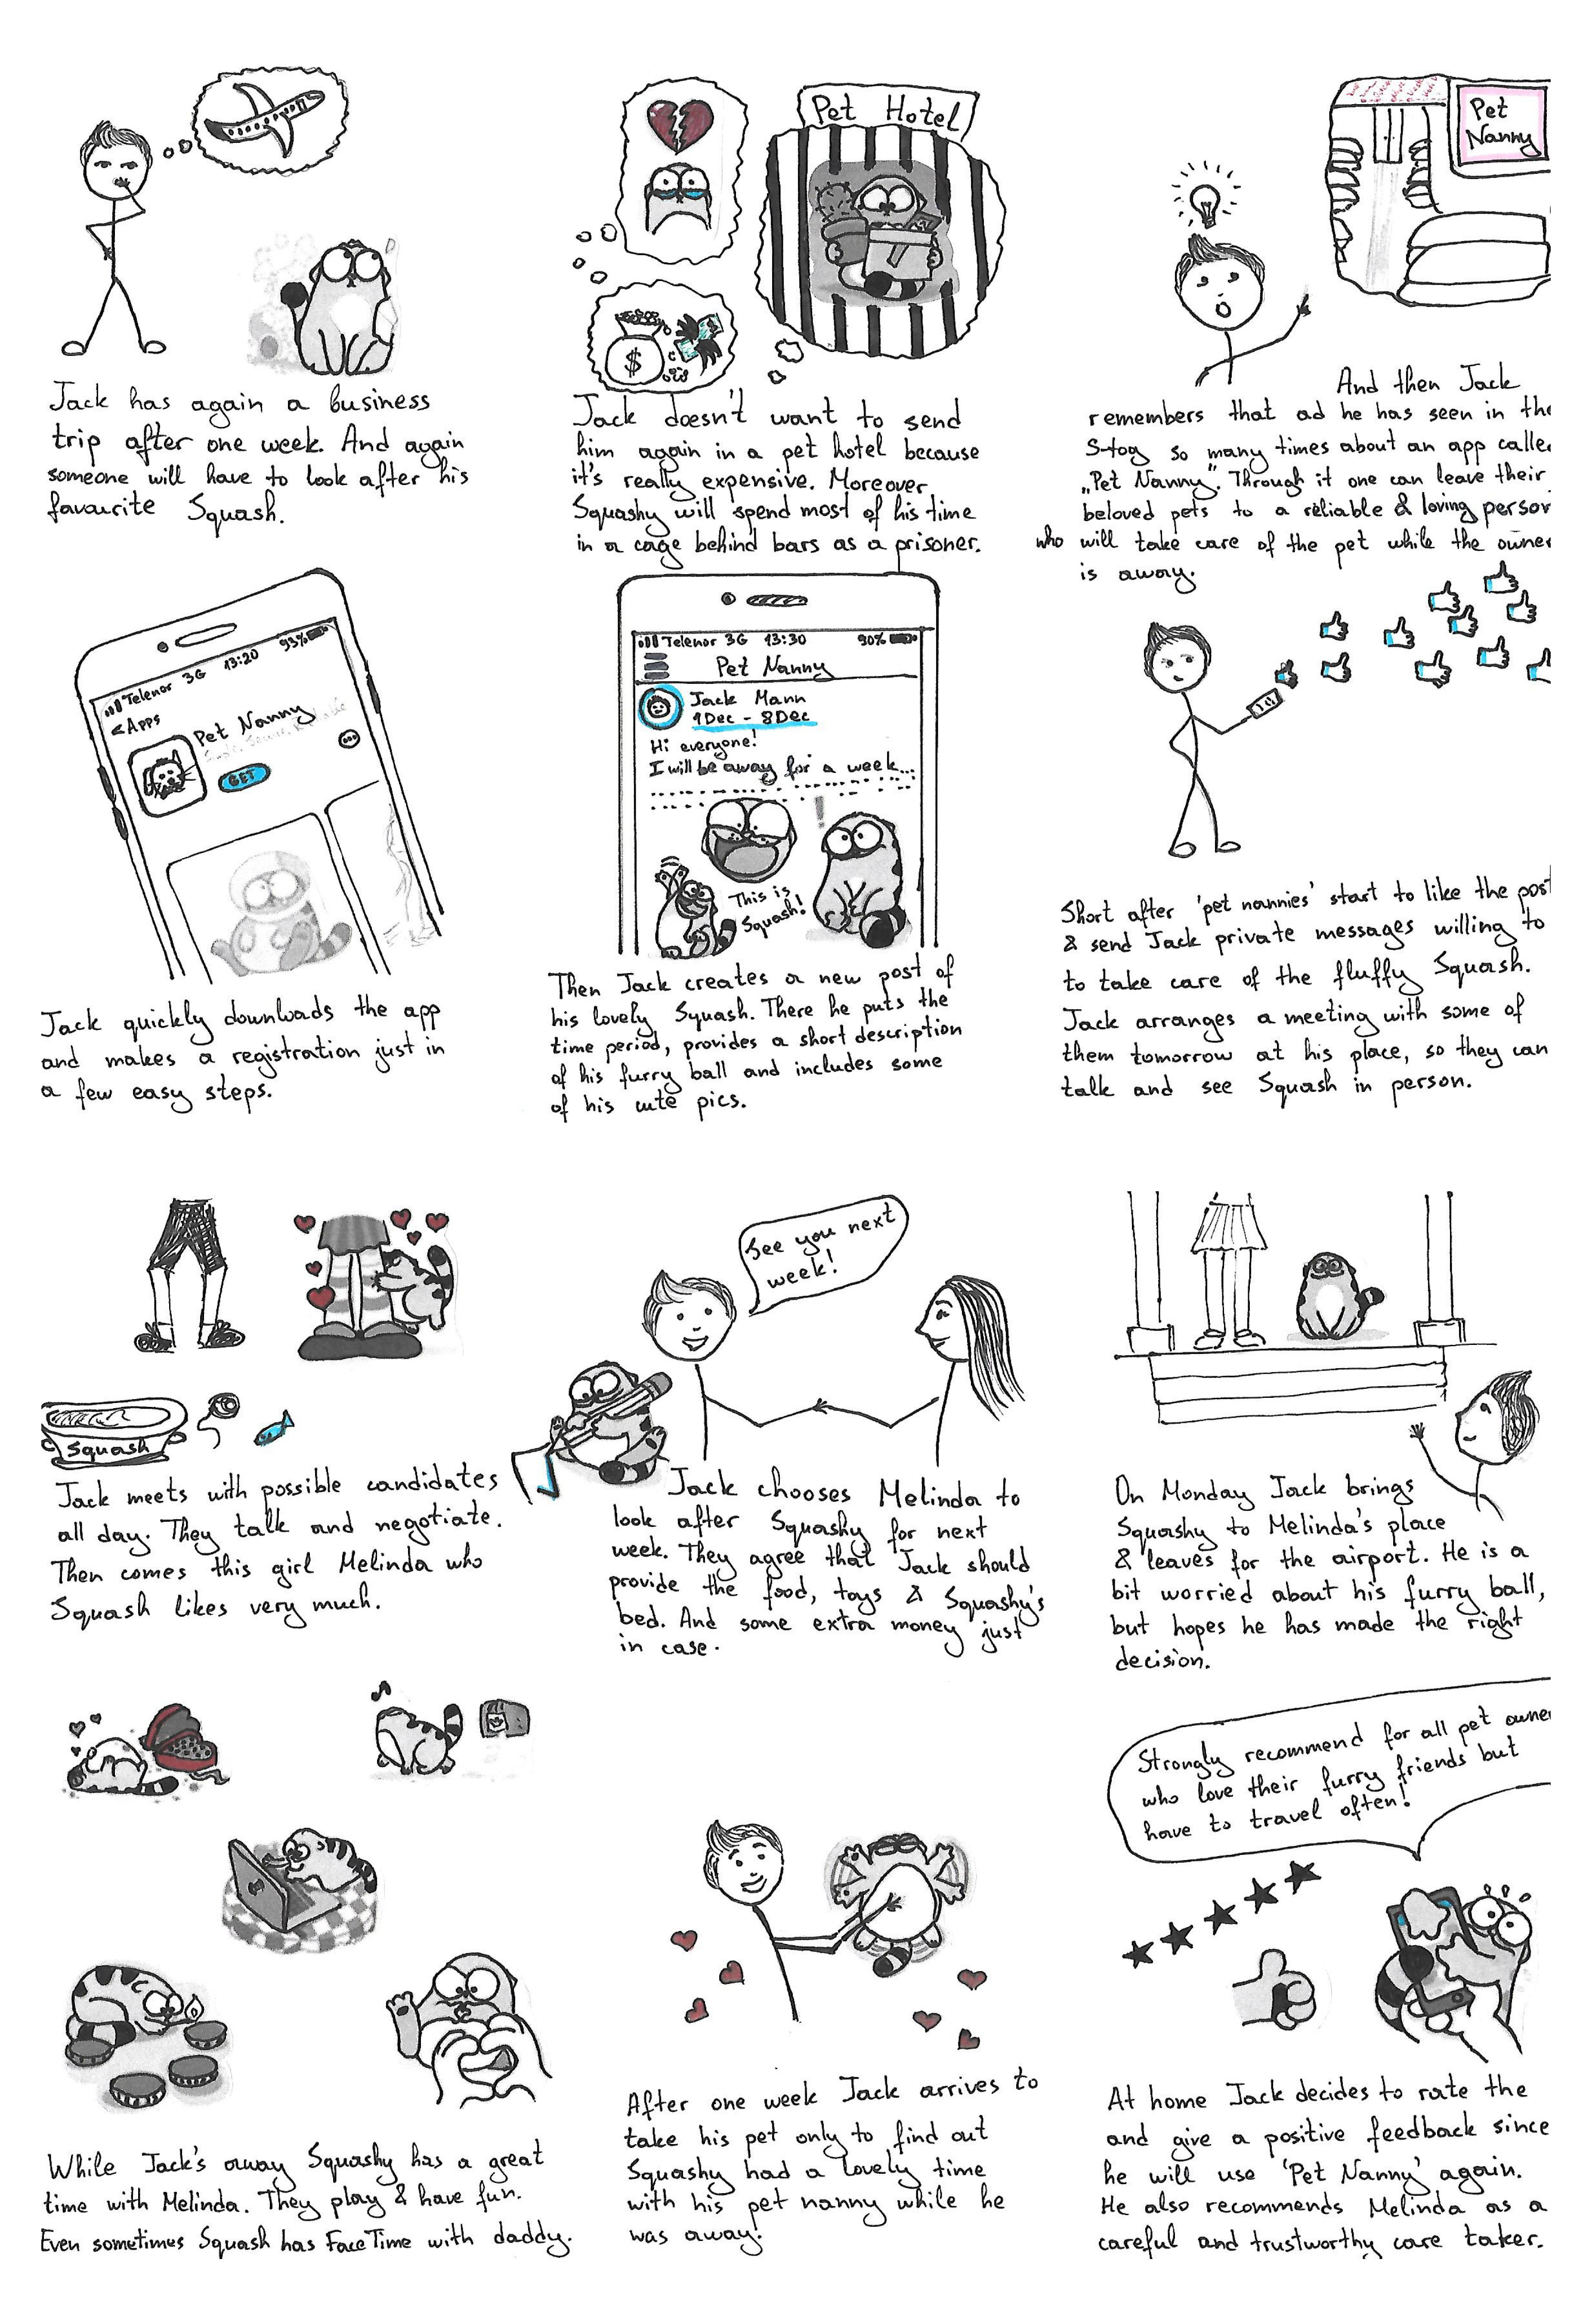 Jack has again a business
trip after one week. And again
someone will have to look after his
favourite Squash.
Pet Hotel
$
Jack doesn't want to send
him again in a pet hotel because
it's really expensive. Moreover
Squashy will spend most of his time
in a cage behind bars as a prisoner.
Pet
Nanny
And then Jack
remembers that ad he has seen in the
S-tog so many times about an app calle
„Pet Nanny”. Through it one can leave their
beloved pets to a reliable & loving person
who will take care of the pet while the owne
is away.
Telenor 3G 13:20 93%
< Apps
Pet Nanny
GET
Jack quickly downloads the app
and makes a registration just in
a few easy steps.
Telenor 3G 13:30 90%
Pet Nanny
Jack Mann
1Dec - 8Dec
Hi everyone!
I will be away for a week...
This is
Squash!
Then Jack creates a new post of
his lovely Squash. There he puts the
time period, provides a short description
of his furry ball and includes some
of his cute pics.
Short after 'pet nannies' start to like the post
& send Jack private messages willing to
to take care of the fluffy Squash.
Jack arranges a meeting with some of
them tomorrow at his place, so they can
talk and see Squash in person.
Squash
Jack meets with possible candidates
all day. They talk and negotiate.
Then comes this girl Melinda who
Squash likes very much.
See you next
week!
Jack chooses Melinda to
look after Squashy for next
week. They agree that Jack should
provide the food, toys & Squashy's
bed. And some extra money just
in case.
On Monday Jack brings
Squashy to Melinda's place
& leaves for the airport. He is a
bit worried about his furry ball,
but hopes he has made the right
decision.
While Jack's away Squashy has a great
time with Melinda. They play & have fun.
Even sometimes Squash has FaceTime with daddy.
After one week Jack arrives to
take his pet only to find out
Squashy had a lovely time
with his pet nanny while he
was away.
Strongly recommend for all pet owne
who love their furry friends but
have to travel often!
At home Jack decides to rate the
and give a positive feedback since
he will use 'Pet Nanny' again.
He also recommends Melinda as a
careful and trustworthy care taker.